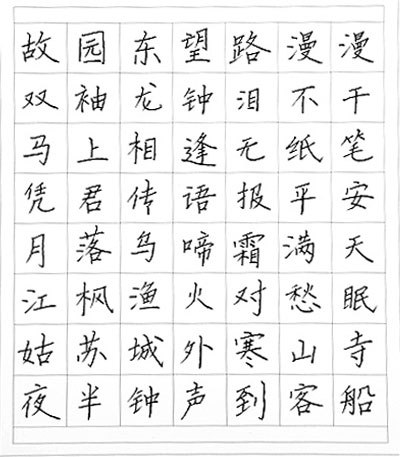 故园东望路漫漫
双袖龙钟泪不干
马上相逢无纸笔
凭君传语报平安
月落乌啼霜满天
江枫渔火对愁眠
姑苏城外寒山寺
夜半钟声到客船